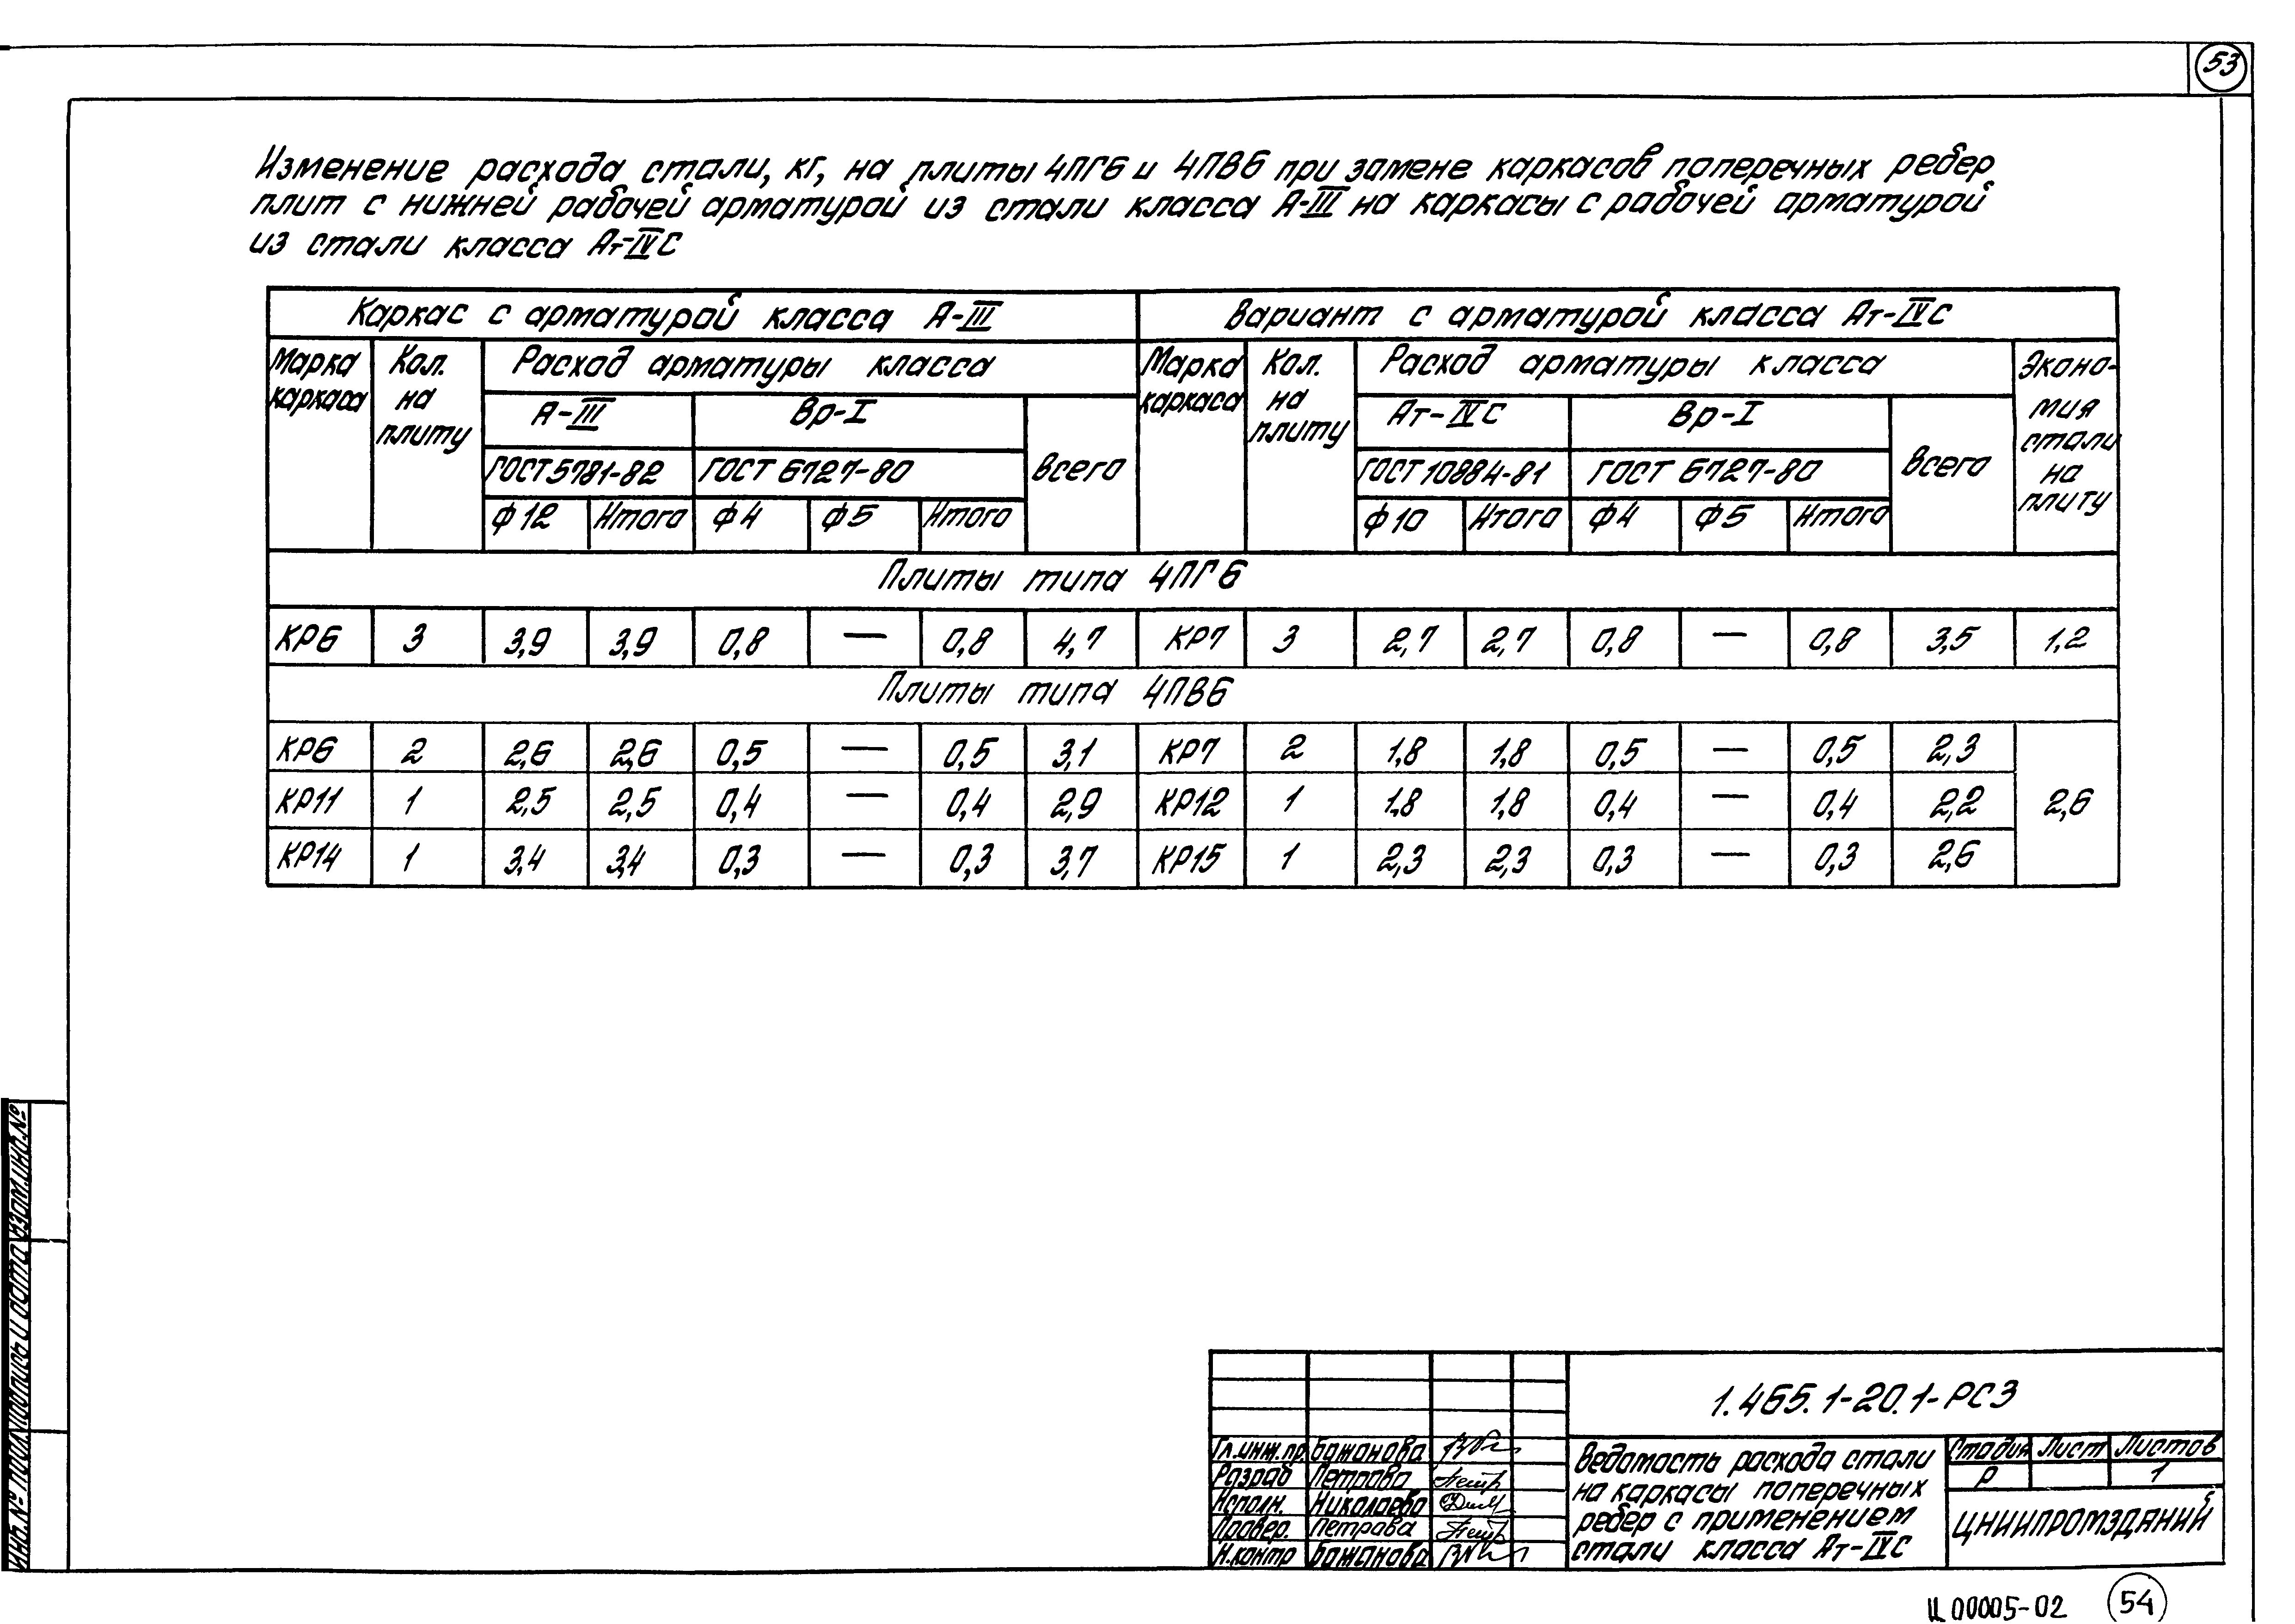 53
Изменение расхода стали, кг, на плиты 4ПГ6 и 4ПВ6 при замене каркасов поперечных ребер
плит с нижней рабочей арматурой из стали класса А-III на каркасы с рабочей арматурой
из стали класса Ат-IVС
Каркас с арматурой класса А-III Вариант с арматурой класса Ат-IVС
Марка каркаса Кол. на плиту Расход арматуры класса Марка каркаса Кол. на плиту Расход арматуры класса Эконо-мия стали на плиту
А-III Вр-I Всего Ат-IVС Вр-I Всего
ГОСТ 5781-82 ГОСТ 6727-80 ГОСТ 10884-81 ГОСТ 6727-80
Ф12 Итого Ф4 Ф5 Итого Ф10 Итого Ф4 Ф5 Итого
Плиты типа 4ПГ6
КР6 3 3,9 3,9 0,8 — 0,8 4,7 КР7 3 2,7 2,7 0,8 — 0,8 3,5 1,2
Плиты типа 4ПВ6
КР6 2 2,6 2,6 0,5 — 0,5 3,1 КР7 2 1,8 1,8 0,5 — 0,5 2,3
КР11 1 2,5 2,5 0,4 — 0,4 2,9 КР12 1 1,8 1,8 0,4 — 0,4 2,2 2,6
КР14 1 3,4 3,4 0,3 — 0,3 3,7 КР15 1 2,3 2,3 0,3 — 0,3 2,6
Инв.№ подл. Подпись и дата Взам.инв.№
1.465.1-20.1-РС3
Гл.инж.пр. Бажанова
Разраб Петрова
Исполн. Николаева
Провер. Петрова
Н.контр Бажанова
Ведомость расхода стали
на каркасы поперечных
ребер с применением
стали класса Ат-IVС
Стадия Лист Листов
Р 1
ЦНИИПРОМЗДАНИЙ
Ц 00005-02 54